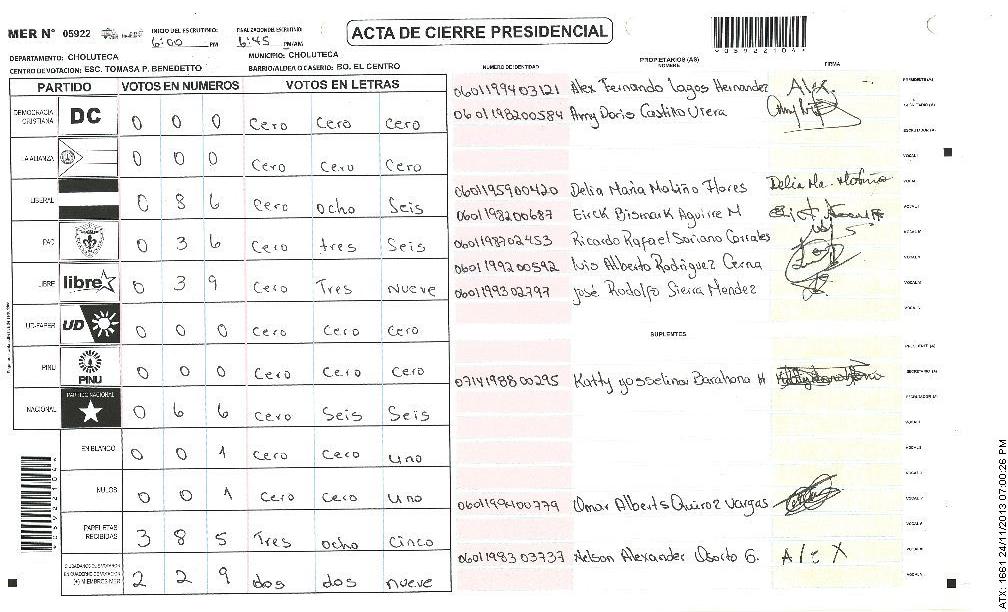 MER N° 05922 INICIO DEL ESCRUTINIO: 6:00 PM FINALIZACION ESCRUTINIO: 6:45 PM/AM ACTA DE CIERRE PRESIDENCIAL
DEPARTAMENTO: CHOLUTECA MUNICIPIO: CHOLUTECA
CENTRO DE VOTACION: ESC. TOMASA P. BENEDETTO BARRIO/ALDEA O CASERIO: BO. EL CENTRO
NUMERO DE IDENTIDAD PROPIETARIOS (AS) NOMBRE FIRMA
PARTIDO VOTOS EN NUMEROS VOTOS EN LETRAS
DEMOCRACIA CRISTIANA DC 0 0 0 Cero Cero Cero
LA ALIANZA 0 0 0 Cero Cero Cero
LIBERAL 0 8 6 Cero ocho Seis
PAC 0 3 6 Cero tres Seis
LIBRE libre 0 3 9 Cero Tres nueve
UD-FAPER UD 0 0 0 Cero Cero Cero
PINU PINU 0 0 0 Cero Cero Cero
NACIONAL PARTIDO NACIONAL 0 6 6 Cero Seis Seis
EN BLANCO 0 0 1 Cero Cero uno
NULOS 0 0 1 Cero Cero uno
PAPELETAS RECIBIDAS 3 8 5 Tres ocho Cinco
(+) MIEMBROS MER 2 2 9 dos dos nueve
0601199403121 Alex Fernando Lagos Hernandez Alex. PRESIDENTE (A)
0601198200584 Amy Doris Castillo Utera SECRETARIO (A)
ESCRUTADOR (A)
VOCAL I
0601195900420 Delia Maria Moliño Flores Delia Ma. Moliño
0601198200687 Eirck Bismark Aguirre M
0601198702453 Ricardo Rafael Soriano Corrales
0601199200592 Luis Alberto Rodriguez Cerna
0601199302797 José Rodolfo Sierra Mendez
SUPLENTES
PRESIDENTE (A)
0714198800295 Katty yosselina Barahona H SECRETARIO (A)
ESCRUTADOR (A)
VOCAL I
0601199400779 Omar Alberts Quiroz Vargas
0601198303737 Nelson Alexander Osorto G. Alex
05922104
ATX: 1661 24/11/2013 07:00:26 PM